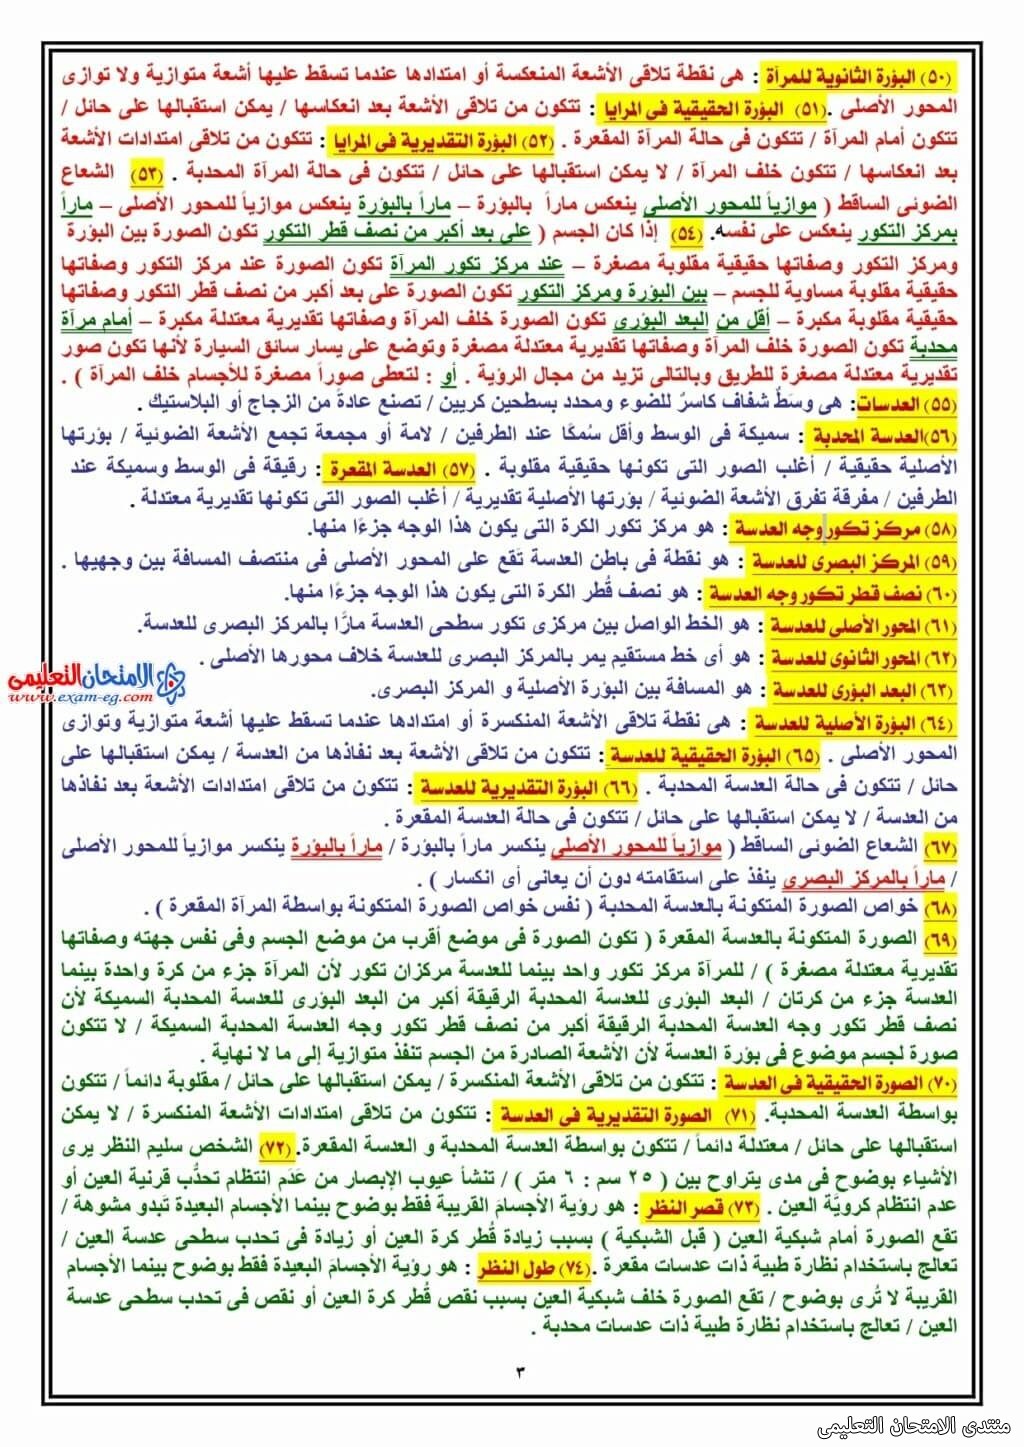 (٥٠) البؤرة الثانوية للمرآة : هى نقطة تلاقى الأشعة المنعكسة أو امتدادها عندما تسقط عليها أشعة متوازية ولا توازى
المحور الأصلى .(٥١) البؤرة الحقيقية فى المرايا : تتكون من تلاقى الأشعة بعد انعكاسها / يمكن استقبالها على حائل /
تتكون أمام المرآة / تتكون فى حالة المرآة المقعرة . (٥٢) البؤرة التقديرية فى المرايا : تتكون من تلاقى امتدادات الأشعة
بعد انعكاسها / تتكون خلف المرآة / لا يمكن استقبالها على حائل / تتكون فى حالة المرآة المحدبة . (٥٣) الشعاع
الضوئى الساقط ( موازياً للمحور الأصلى ينعكس ماراً بالبؤرة – ماراً بالبؤرة ينعكس موازياً للمحور الأصلى – ماراً
بمركز التكور ينعكس على نفسه. (٥٤) إذا كان الجسم ( على بعد أكبر من نصف قطر التكور تكون الصورة بين البؤرة
ومركز التكور وصفاتها حقيقية مقلوبة مصغرة – عند مركز تكور المرآة تكون الصورة عند مركز التكور وصفاتها
حقيقية مقلوبة مساوية للجسم – بين البؤرة ومركز التكور تكون الصورة على بعد أكبر من نصف قطر التكور وصفاتها
حقيقية مقلوبة مكبرة – أقل من البعد البؤرى تكون الصورة خلف المرآة وصفاتها تقديرية معتدلة مكبرة – أمام مرآة
محدبة تكون الصورة خلف المرآة وصفاتها تقديرية معتدلة مصغرة وتوضع على يسار سائق السيارة لأنها تكون صور
تقديرية معتدلة مصغرة للطريق وبالتالى تزيد من مجال الرؤية . أو : لتعطى صوراً مصغرة للأجسام خلف المرآة ) .
(٥٥) العدسات: هى وسَطٌ شفاف كاسرٌ للضوء ومحدد بسطحين كريين / تصنع عادةً من الزجاج أو البلاستيك .
(٥٦)العدسة المحدبة : سميكة فى الوسط وأقل سُمكًا عند الطرفين / لامة أو مجمعة تجمع الأشعة الضوئية / بؤرتها
الأصلية حقيقية / أغلب الصور التى تكونها حقيقية مقلوبة . (٥٧) العدسة المقعرة : رقيقة فى الوسط وسميكة عند
الطرفين / مفرقة تفرق الأشعة الضوئية / بؤرتها الأصلية تقديرية / أغلب الصور التى تكونها تقديرية معتدلة .
(٥٨) مركز تكور وجه العدسة : هو مركز تكور الكرة التى يكون هذا الوجه جزءًا منها.
(٥٩) المركز البصرى للعدسة : هو نقطة فى باطن العدسة تَقع على المحور الأصلى فى منتصف المسافة بين وجهيها .
(٦٠) نصف قطر تكور وجه العدسة : هو نصف قُطر الكرة التى يكون هذا الوجه جزءًا منها.
(٦١) المحور الأصلى للعدسة : هو الخط الواصل بين مركزى تكور سطحى العدسة مارًا بالمركز البصرى للعدسة.
(٦٢) المحور الثانوى للعدسة : هو أى خط مستقيم يمر بالمركز البصرى للعدسة خلاف محورها الأصلى .
(٦٣) البعد البؤرى للعدسة : هو المسافة بين البؤرة الأصلية و المركز البصرى.
(٦٤) البؤرة الأصلية للعدسة : هى نقطة تلاقى الأشعة المنكسرة أو امتدادها عندما تسقط عليها أشعة متوازية وتوازى
المحور الأصلى . (٦٥) البؤرة الحقيقية للعدسة : تتكون من تلاقى الأشعة بعد نفاذها من العدسة / يمكن استقبالها على
حائل / تتكون فى حالة العدسة المحدبة . (٦٦) البؤرة التقديرية للعدسة : تتكون من تلاقى امتدادات الأشعة بعد نفاذها
من العدسة / لا يمكن استقبالها على حائل / تتكون فى حالة العدسة المقعرة .
(٦٧) الشعاع الضوئى الساقط ( موازياً للمحور الأصلى ينكسر ماراً بالبؤرة / ماراً بالبؤرة ينكسر موازياً للمحور الأصلى
/ ماراً بالمركز البصرى ينفذ على استقامته دون أن يعانى أى انكسار ) .
(٦٨) خواص الصورة المتكونة بالعدسة المحدبة ( نفس خواص الصورة المتكونة بواسطة المرآة المقعرة ) .
(٦٩) الصورة المتكونة بالعدسة المقعرة ( تكون الصورة فى موضع أقرب من موضع الجسم وفى نفس جهته وصفاتها
تقديرية معتدلة مصغرة ) / للمرآة مركز تكور واحد بينما للعدسة مركزان تكور لأن المرآة جزء من كرة واحدة بينما
العدسة جزء من كرتان / البعد البؤرى للعدسة المحدبة الرقيقة أكبر من البعد البؤرى للعدسة المحدبة السميكة لأن
نصف قطر تكور وجه العدسة المحدبة الرقيقة أكبر من نصف قطر تكور وجه العدسة المحدبة السميكة / لا تتكون
صورة لجسم موضوع فى بؤرة العدسة لأن الأشعة الصادرة من الجسم تنفذ متوازية إلى ما لا نهاية .
(٧٠) الصورة الحقيقية فى العدسة : تتكون من تلاقى الأشعة المنكسرة / يمكن استقبالها على حائل / مقلوبة دائماً / تتكون
بواسطة العدسة المحدبة. (٧١) الصورة التقديرية فى العدسة : تتكون من تلاقى امتدادات الأشعة المنكسرة / لا يمكن
استقبالها على حائل / معتدلة دائماً / تتكون بواسطة العدسة المحدبة و العدسة المقعرة. (٧٢) الشخص سليم النظر يرى
الأشياء بوضوح فى مدى يتراوح بين ( ٢٥ سم : ٦ متر ) / تنشأ عيوب الإبصار من عَدَم انتظام تحدُّب قرنية العين أو
عدم انتظام كرويَّة العين . (٧٣) قصر النظر : هو رؤية الأجسامَ القريبة فقط بوضوح بينما الأجسام البعيدة تَبدو مشوهة /
تقع الصورة أمام شبكية العين ( قبل الشبكية ) بسبب زيادة قُطر كرة العين أو زيادة فى تحدب سطحى عدسة العين /
تعالج باستخدام نظارة طبية ذات عدسات مقعرة .(٧٤) طول النظر : هو رؤية الأجسامَ البعيدة فقط بوضوح بينما الأجسام
القريبة لا تُرى بوضوح / تقع الصورة خلف شبكية العين بسبب نقص قُطر كرة العين أو نقص فى تحدب سطحى عدسة
العين / تعالج باستخدام نظارة طبية ذات عدسات محدبة .
٣
الامتحان التعليمى
www.exam-eg.com
منتدى الامتحان التعليمى